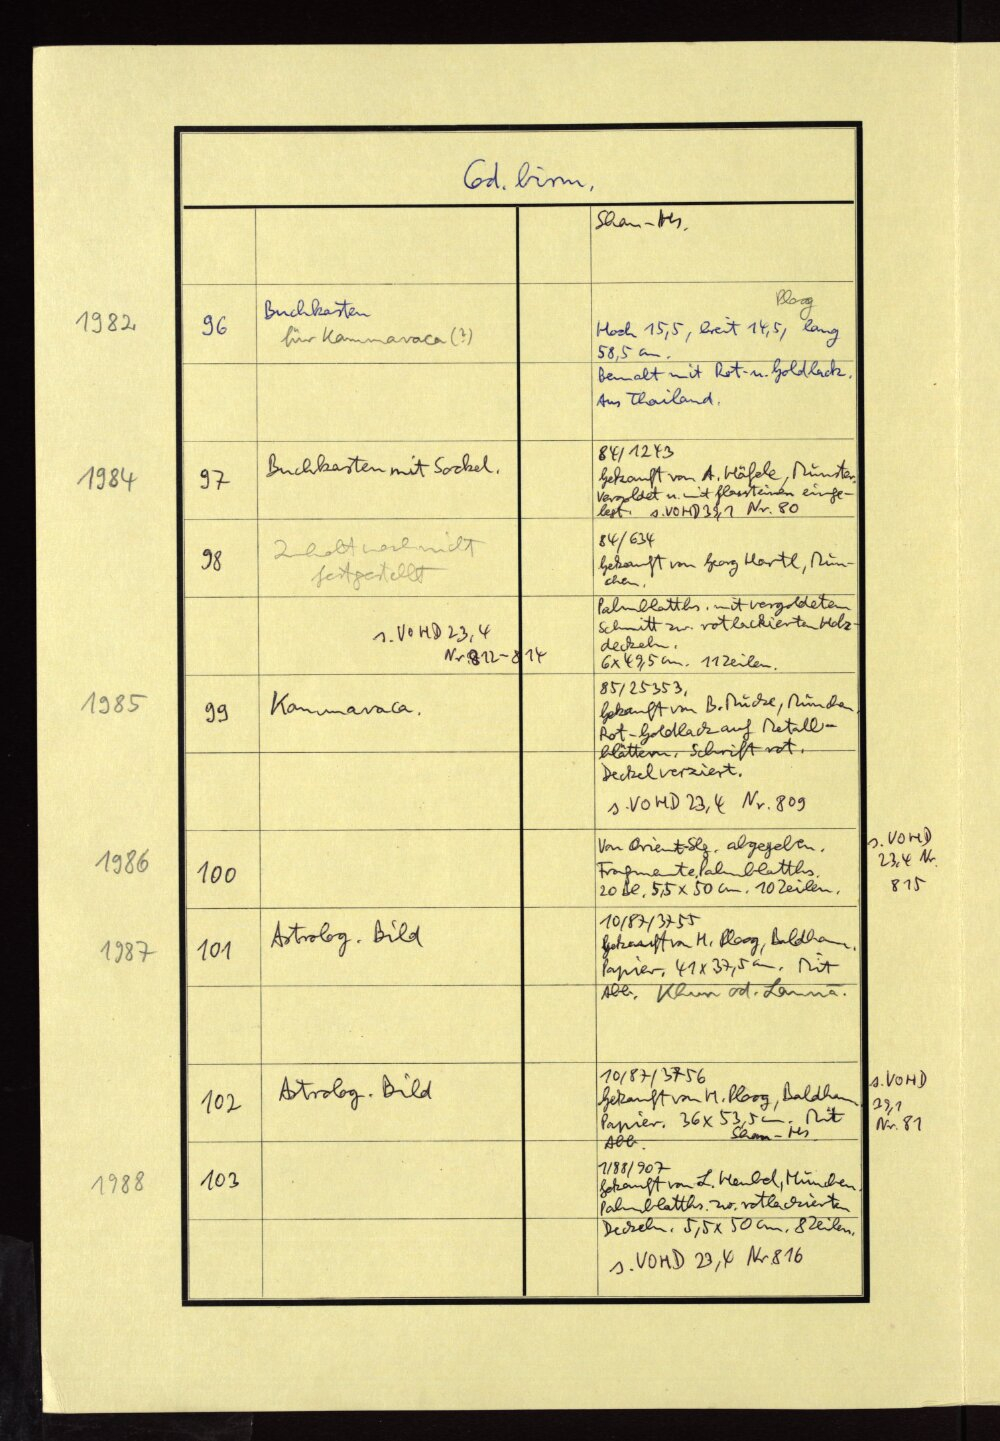 Cod. birm.
Shan-Hs.
1982
96
Buchkasten
für Kammavaca (?)
Ploog
Hoch 15,5, breit 14,5, lang
58,5 cm.
Bemalt mit Rot- u. Goldlack.
Aus Thailand.
1984
97
Buchkasten mit Sockel.
84/1243
Gekauft von A. Häfele, Münster.
Vergoldet u. mit Glassteinen einge-
legt. s. VOHD 39,1 Nr. 80
98
Inhalt noch nicht
festgestellt
s. VOHD 23,4
Nr. 812-814
84/634
Gekauft von Georg Hartl, Mün-
chen.
Palmblatths. mit vergoldetem
Schnitt zw. rotlackierten Holz-
deckeln.
6 x 49,5 cm. 11 Zeilen.
1985
99
Kammavaca.
85/25353.
Gekauft von B. Mücke, München.
Rot-Goldlack auf Metall-
blättern. Schrift rot.
Deckel verziert.
s. VOHD 23,4 Nr. 809
1986
100
Von Orient-Slg. abgegeben.
Fragmente, Palmblatths.
20 Bl. 5,5 x 50 cm. 10 Zeilen.
s. VOHD
23,4 Nr.
815
1987
101
Astrolog. Bild
10/87/3755
Gekauft von H. Ploog, Baldham.
Papier. 41 x 37,5 cm. Mit
Abb. Khün od. Lanna.
102
Astrolog. Bild
10/87/3756
Gekauft von H. Ploog, Baldham
Papier. 36 x 53,5 cm. Mit
Abb. Shan-Hs.
s. VOHD
39,1
Nr. 81
1988
103
1/88/907
Gekauft von L. Heubel, München.
Palmblatths. zw. rotlackierten
Deckeln. 5,5 x 50 cm. 8 Zeilen.
s. VOHD 23,4 Nr. 816